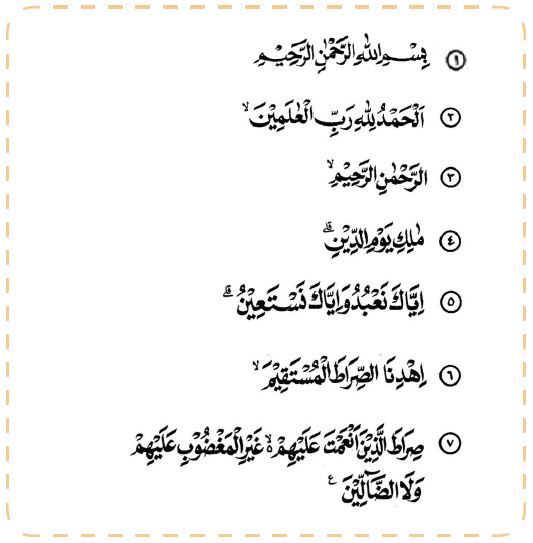 ١ بِسْمِ اللهِ الرَّحْمٰنِ الرَّحِيْمِ
٢ اَلْحَمْدُ لِلّٰهِ رَبِّ الْعٰلَمِيْنَۙ
٣ الرَّحْمٰنِ الرَّحِيْمِۙ
٤ مٰلِكِ يَوْمِ الدِّيْنِۗ
٥ اِيَّاكَ نَعْبُدُ وَاِيَّاكَ نَسْتَعِيْنُۗ
٦ اِهْدِنَا الصِّرَاطَ الْمُسْتَقِيْمَۙ
٧ صِرَاطَ الَّذِيْنَ اَنْعَمْتَ عَلَيْهِمْ ەۙ غَيْرِ الْمَغْضُوْبِ عَلَيْهِمْ
وَلَا الضَّاۤلِّيْنَ ع